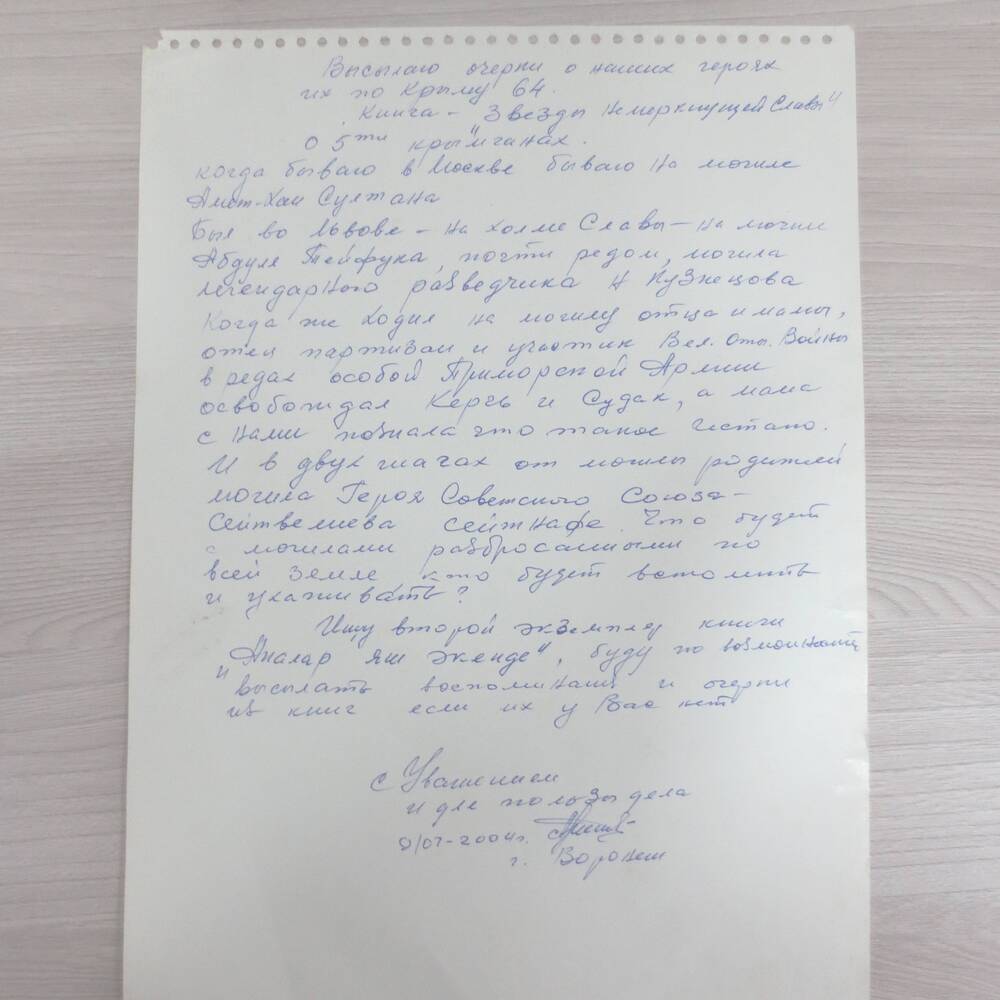 Высылаю очерки о наших героях
их по Крыму 64.
Книга - "Звезды Немеркнущей Славы"
о 5ти крымчанах.
когда бываю в Москве бываю на могиле
Амет-Хан Султана
Был во Львове - на холме Славы - на могиле
Абдуля Тейфука, почти редом, могила
легендарного разведчика Н Кузнецова
Когда же ходил на могилу отца и мамы,
отец партизан и участик Вел. Оты. Войны
в редах особой Приморской Армии
освобождал Керчь и Судак, а мама
с нами познала что такое
И в двух шагах от могилы родителей
могила Героя Советского Союза -
Сейтвелиева Сейтнафе. Что будет
с могилами разбросаными по
всей земле кто будет вспомнить
и ухаживать?
Ищу второй экземпляр книги
"Аналар яш экенде", буду по возможности
высылать воспоминания и очерки
из книг если их у Вас нет
с Уважением
и для пользы дела
8/07-2004г.
г. Воронеж